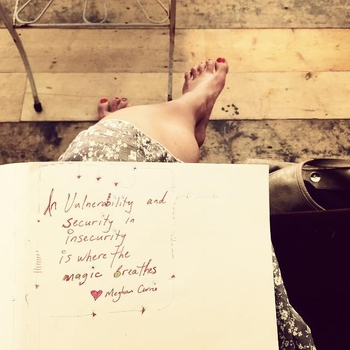 In Vulnerability and
Security in
insecurity
is where the
magic breathes
Meghan